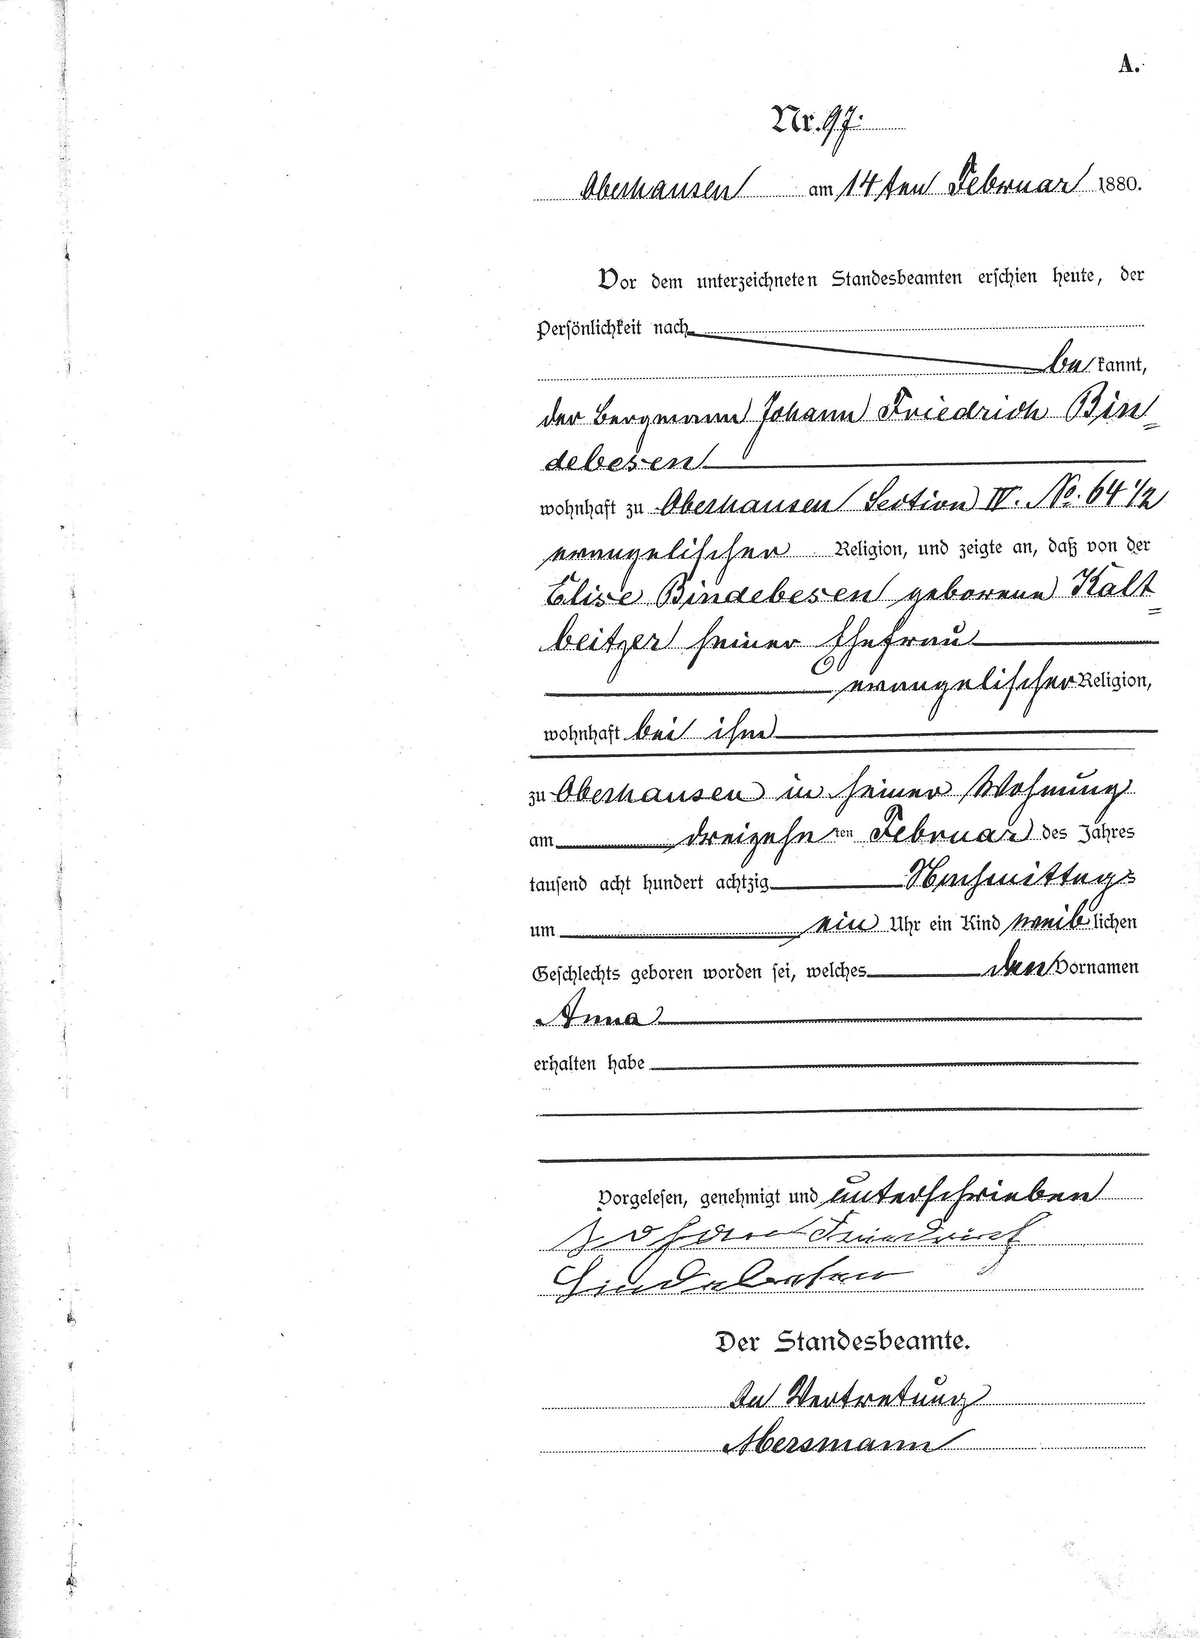 A.
Nr. 97.
Oberhausen am 14ten Februar 1880.
Vor dem unterzeichneten Standesbeamten erschien heute, der
Persönlichkeit nach
be kannt,
der Bergmann Johann Friedrich Bin=
debesen
wohnhaft zu Oberhausen Section IV. No. 64 1/2
evangelischer Religion, und zeigte an, daß von der
Elise Bindebesen geborene Kalt=
beitzer seiner Ehefrau
evangelischer Religion,
wohnhaft bei ihm
zu Oberhausen in seiner Wohnung
am dreizehn ten Februar des Jahres
tausend acht hundert achtzig Nachmittags
um ein Uhr ein Kind weib lichen
Geschlechts geboren worden sei, welches den Vornamen
Anna
erhalten habe
Vorgelesen, genehmigt und unterschrieben
Johann Friedrich
Der Standesbeamte.
In Vertretung